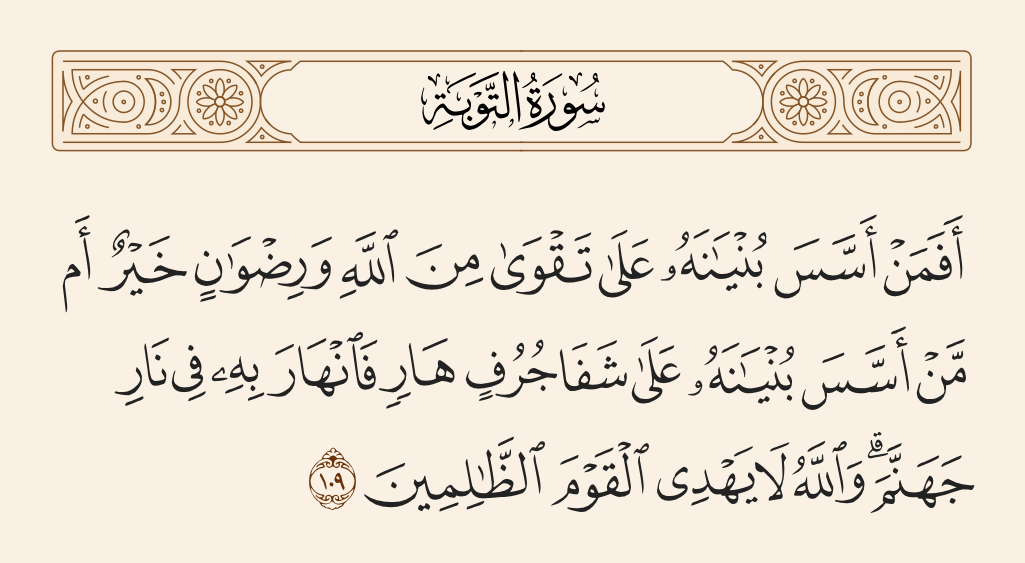 سُورَةُ التَّوْبَةِ
أَفَمَنْ أَسَّسَ بُنْيَٰنَهُۥ عَلَىٰ تَقْوَىٰ مِنَ ٱللَّهِ وَرِضْوَٰنٍ خَيْرٌ أَم
مَّنْ أَسَّسَ بُنْيَٰنَهُۥ عَلَىٰ شَفَا جُرُفٍ هَارٍ فَٱنْهَارَ بِهِۦ فِى نَارِ
جَهَنَّمَ ۗ وَٱللَّهُ لَا يَهْدِى ٱلْقَوْمَ ٱلظَّٰلِمِينَ ١٠٩